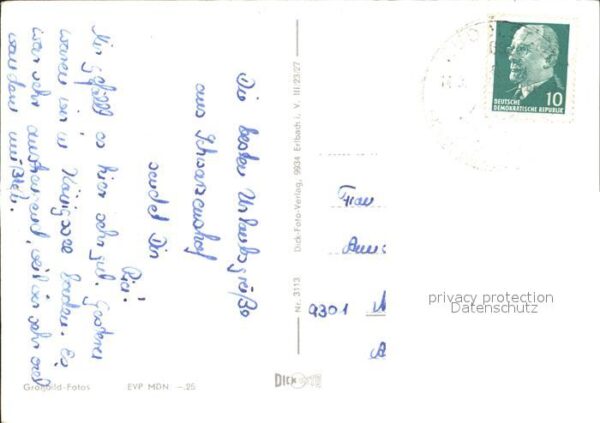 Die besten Urlaubsgrüße
aus Schwarzenshof
sendet Dir
Rici.
Mir gefällt es hier sehr gut. Gestern
waren wir in Königsee baden. Es
war sehr anstrengend, weil wir sehr viel
wandern mußten.
Großbild-Fotos
EVP MDN -.25
Nr. 3113 Dick-Foto-Verlag, 9934 Erlbach i. V. III/23/27
DICK
FOTO
10
DEUTSCHE
DEMOKRATISCHE REPUBLIK
Frau
9301
privacy protection
Datenschutz